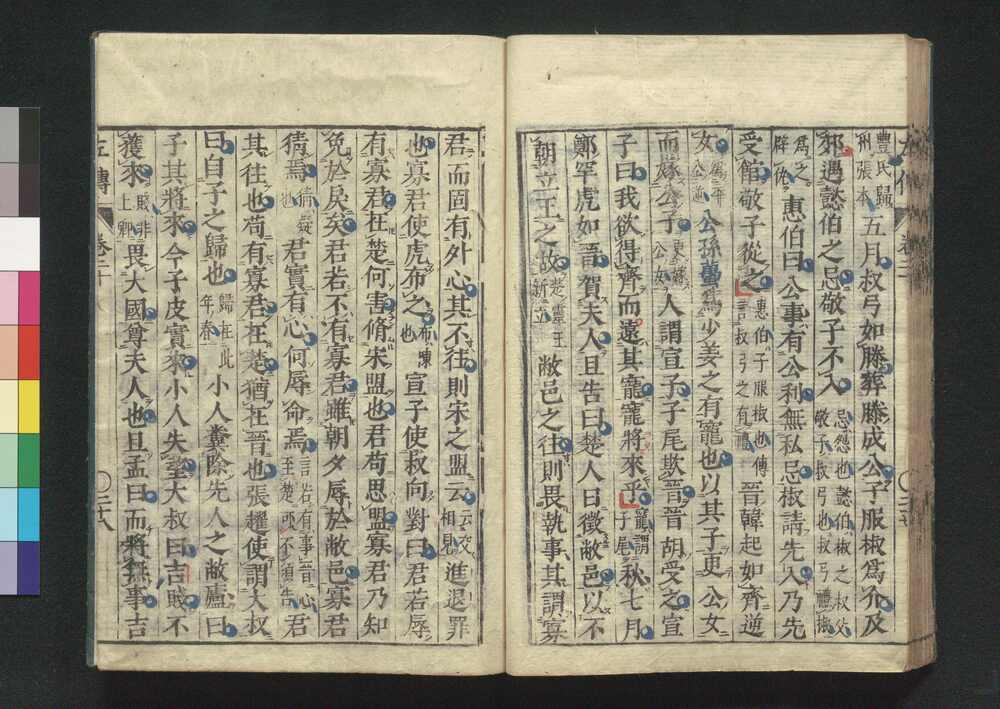 豐氏歸州張本五月叔弓如滕葬滕成公子服椒爲介及
郊遇懿伯之忌敬子不入忌怨也懿伯椒之叔父敬子叔弓也叔弓禮椒
爲之辟仇惠伯曰公事有公利無私忌椒請先入乃先
受館敬子從之惠伯子服椒也傳言叔弓之有禮晉韓起如齊逆
女爲平公逆公孫蠆爲少姜之有寵也以其子更公女
而嫁公子更嫁公女人謂宣子子尾欺晉晉胡受之宣
子曰我欲得齊而遠其寵寵將來乎寵謂子尾秋七月
鄭罕虎如晉賀夫人且告曰楚人日徵敝邑以不
朝立王之故楚靈王新立敝邑之往則畏執事其謂寡
君而固有外心其不往則宋之盟云云交相見進退罪
也寡君使虎布之布陳也宣子使叔向對曰君若辱
有寡君在楚何害脩宋盟也君苟思盟寡君乃知
免於戾矣君若不有寡君雖朝夕辱於敝邑寡君
猜焉猜疑也君實有心何辱命焉言若有事晉心至楚可不須告君
其往也苟有寡君在楚猶在晉也張趯使謂大叔
曰自子之歸也歸在此年春小人糞除先人之敝廬曰
子其將來今子皮實來小人失望大叔曰吉賤不
獲來賤非上卿畏大國尊夫人也且孟曰而將無事吉
左傳 卷二十 二十八